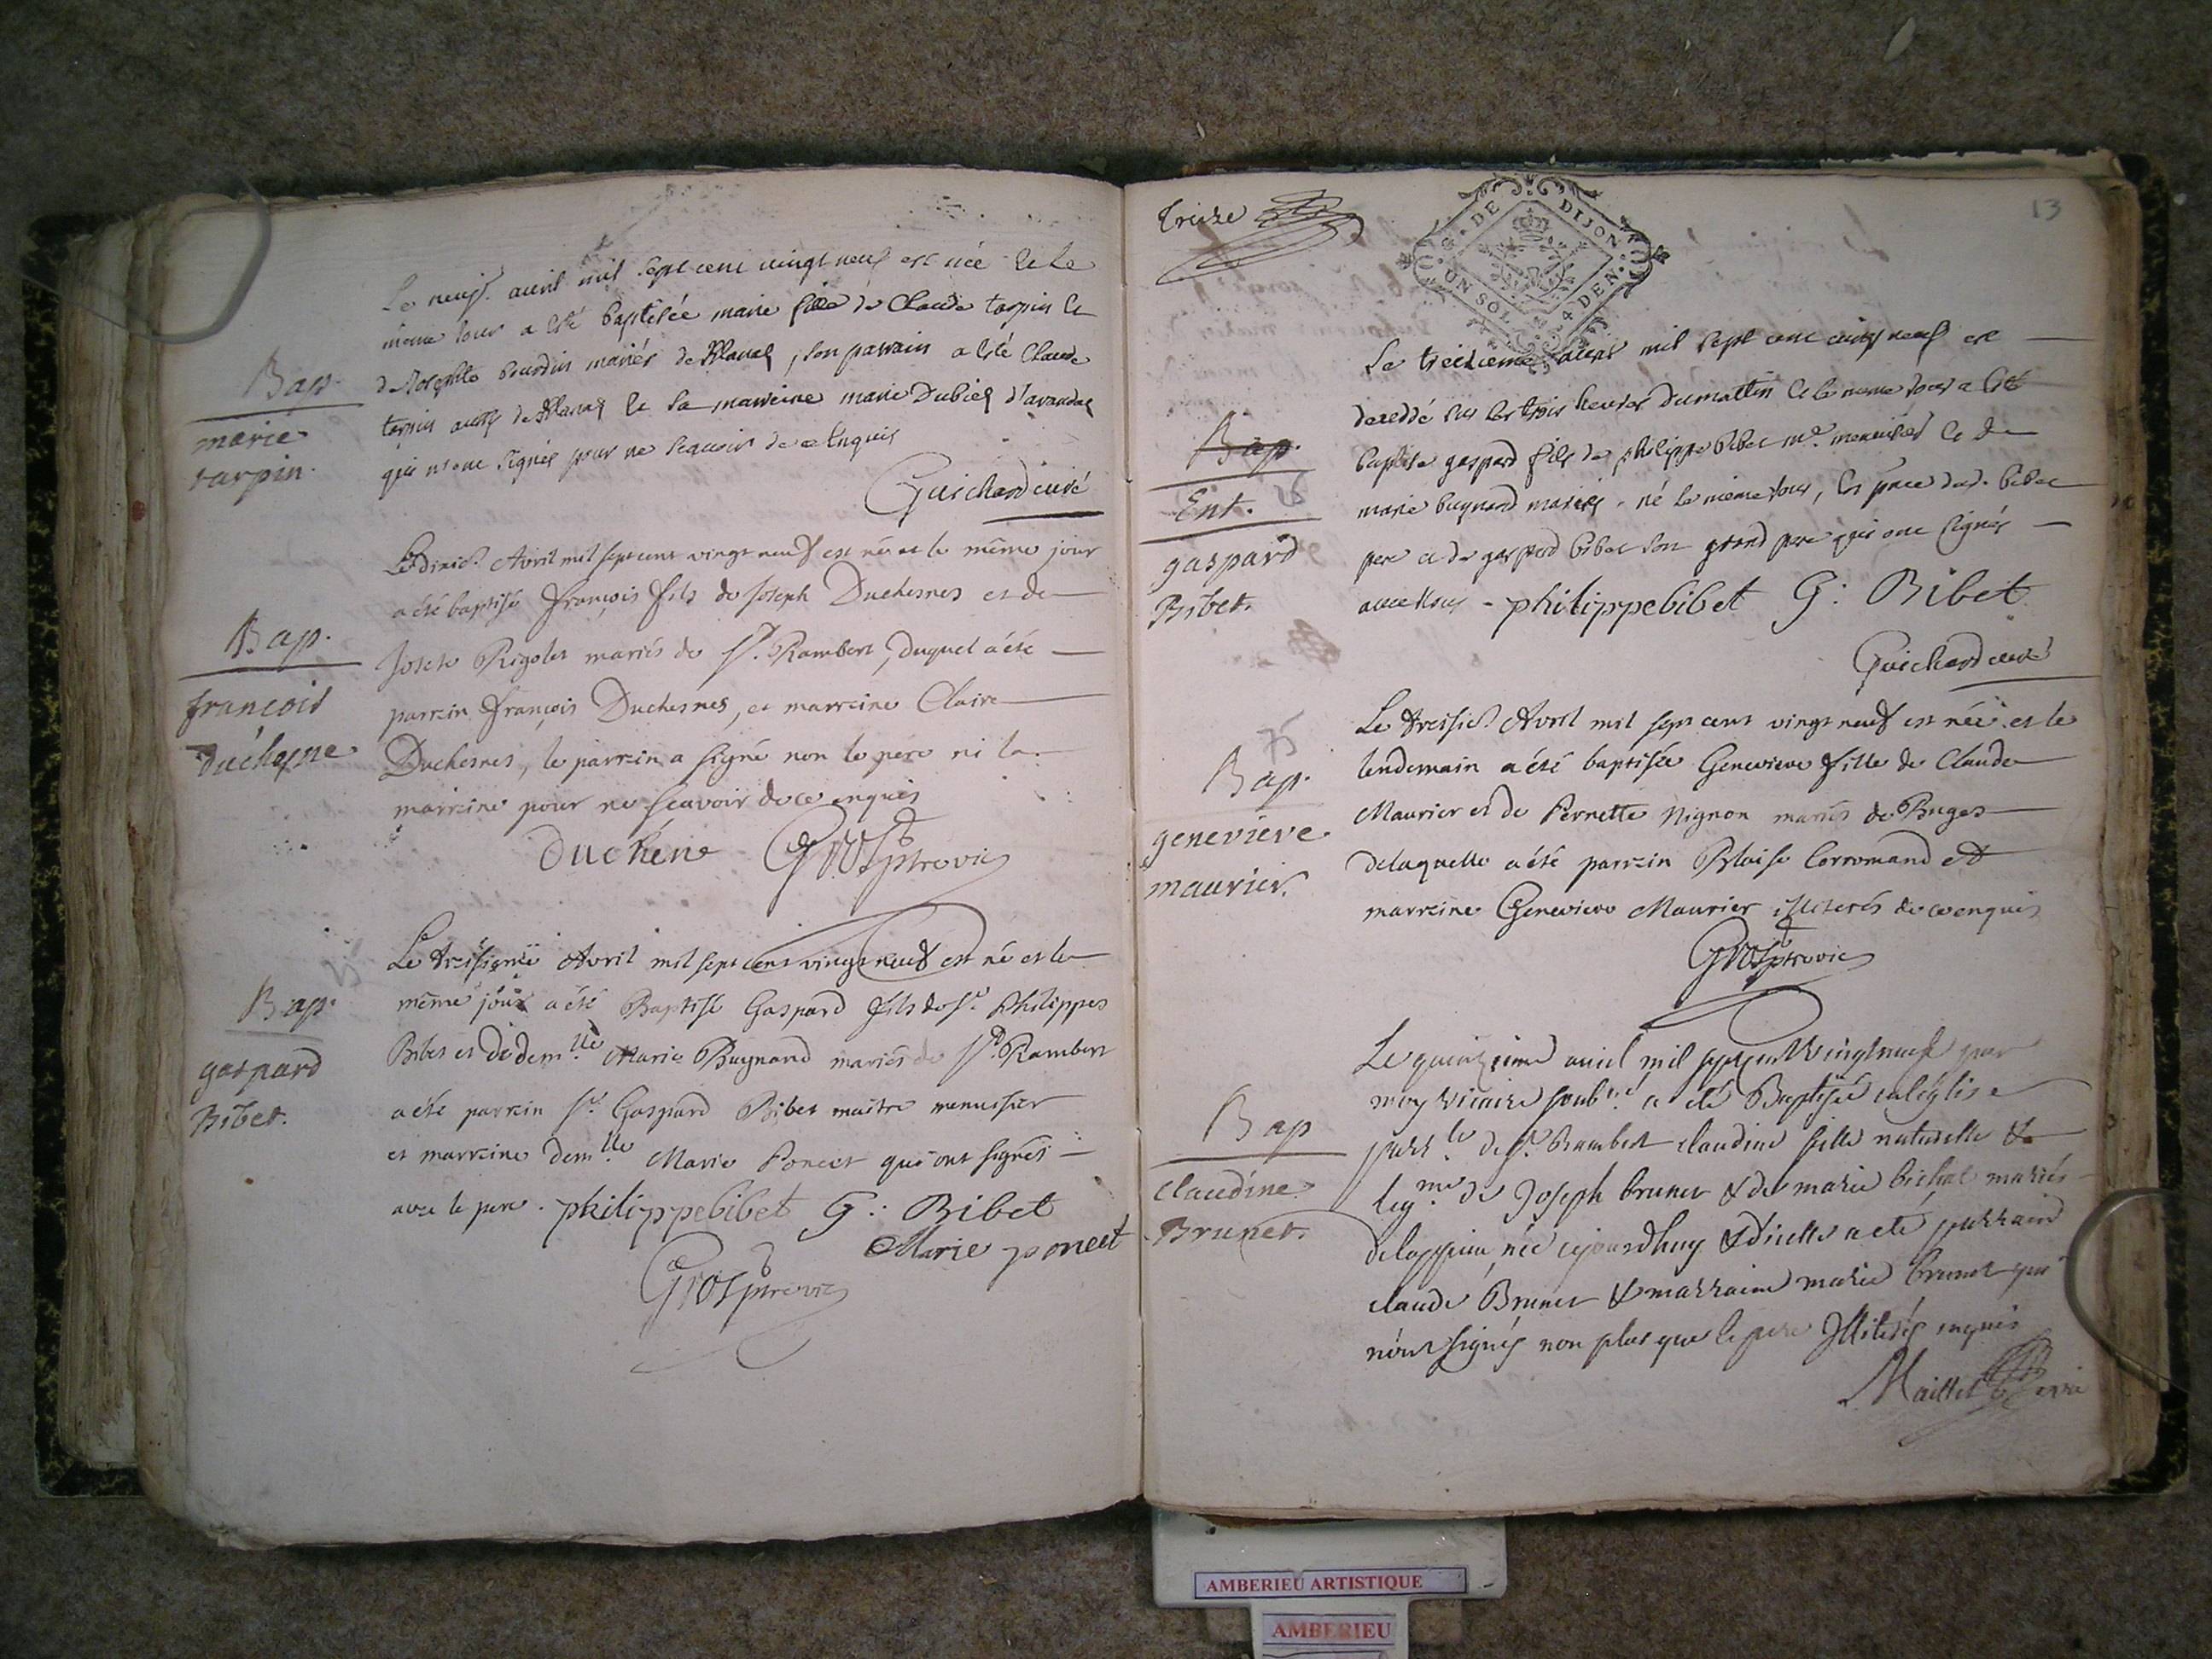 Bap.
marie
tarpin.
Le neufe. avril mil sept cent vingt neuf est née & le
même jour a esté baptisée marie fille de Claude tarpin &
de Josephte bourdin mariés de Blanas, son parrain a esté Claude
tarpin aussy de Blanas & sa marreine marie Dubiez d'arandas
qui n'ont signés pour ne scauoir de ce Enquis
Guichard curé
Bap.
francois
duchesne
Le dixie. Avril mil sept cent vingt neuf est né et le même jour
a été baptisé François fils de Joseph Duchesnes et de
Josete Rigolet mariés de St. Rambert, duquel a été
parrein François Duchesnes, et marreine Claire
Duchesnes, le parrein a signé non le pere ni la
marreine pour ne scavoir de ce enquis
Duchene Grosp ptre vic
Bap.
gaspard
Bibet.
Le treisieme Avril mil sept cent vingt neuf est né et le
même jour a été Baptisé Gaspard fils de Sr. Philippes
Bibet et de demlle. Marie Bugnand mariés de St. Rambert
a été parrein Sr. Gaspard Bibet maître menusier
et marreine demlle Marie Poncet qui ont signés
avec le pere. philippe bibet G: Bibet
Marie poncet
Gros ptre vic
treize
13
G. DE DIJON
UN SOL 4 DEN.
Bap.
Ent.
gaspard
Bibet.
Le treizieme avril mil sept cent vingt neuf est
decedé sur les trois heures du mattin & le meme jour a esté
baptisé gaspard fils de philippe bibet me. menuisier & de
marie bugnand mariés né le meme jour, en pnce dud. bibet
pere et de gaspard bibet son grand pere qui ont signés
auec nous - philippe bibet G: Bibet
Guichard curé
75
Bap.
genevieve
maurier.
Le treisie. Avril mil sept cent vingt neuf est née et le
lendemain a été baptisée Genevieve fille de Claude
Maurier et de Pernette Mignon mariés de Buges
de laquelle a été parrein Blaise Corromand et
marreine Genevieve Maurier illiterés de ce enquis
Gros ptre vic
Bap
claudine
Brunet.
Le quinzieme auril mil sept cent vingt neuf par
moy vicaire soubne. a eté Baptisée en l'eglise
parrle. de St. Rambert claudine fille naturelle &
legme. de Joseph brunet & de marie bichat mariés
de loppieu, née cejourd'huy & d'icelle a eté parrain
claude Brunet & marraine marie brunet qui
n'ont signés non plus que le pere Illiterés enquis
Maillet
AMBERIEU ARTISTIQUE
AMBERIEU